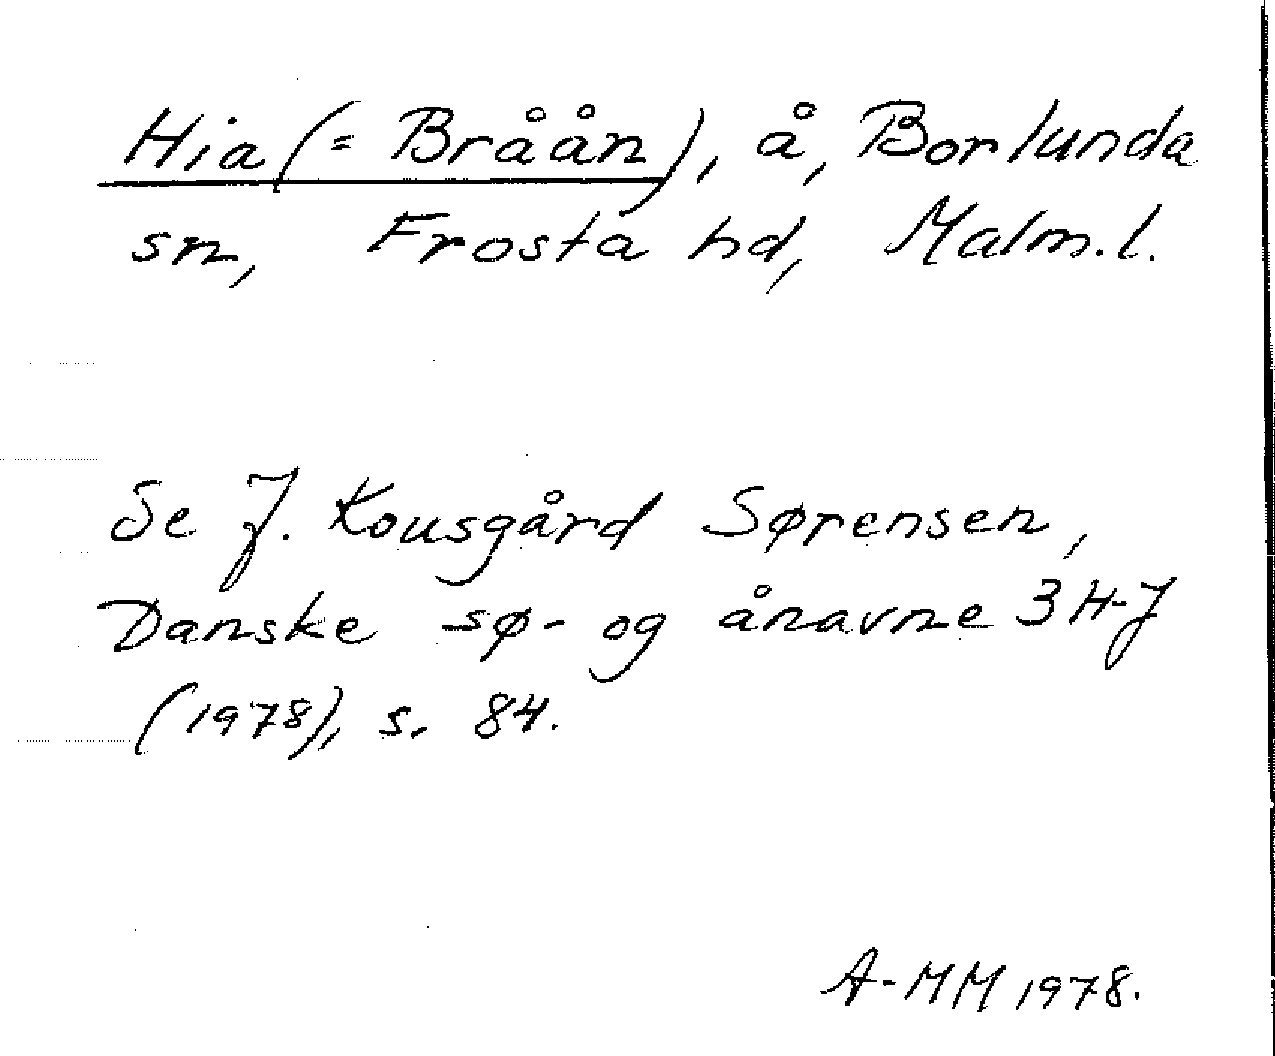 Hia (= Bråån), å, Borlunda
sn, Frosta hd, Malm. l.
Se J. Kousgård Sørensen,
Danske sø- og ånavne 3 H-J
(1978), s. 84.
A-MM 1978.